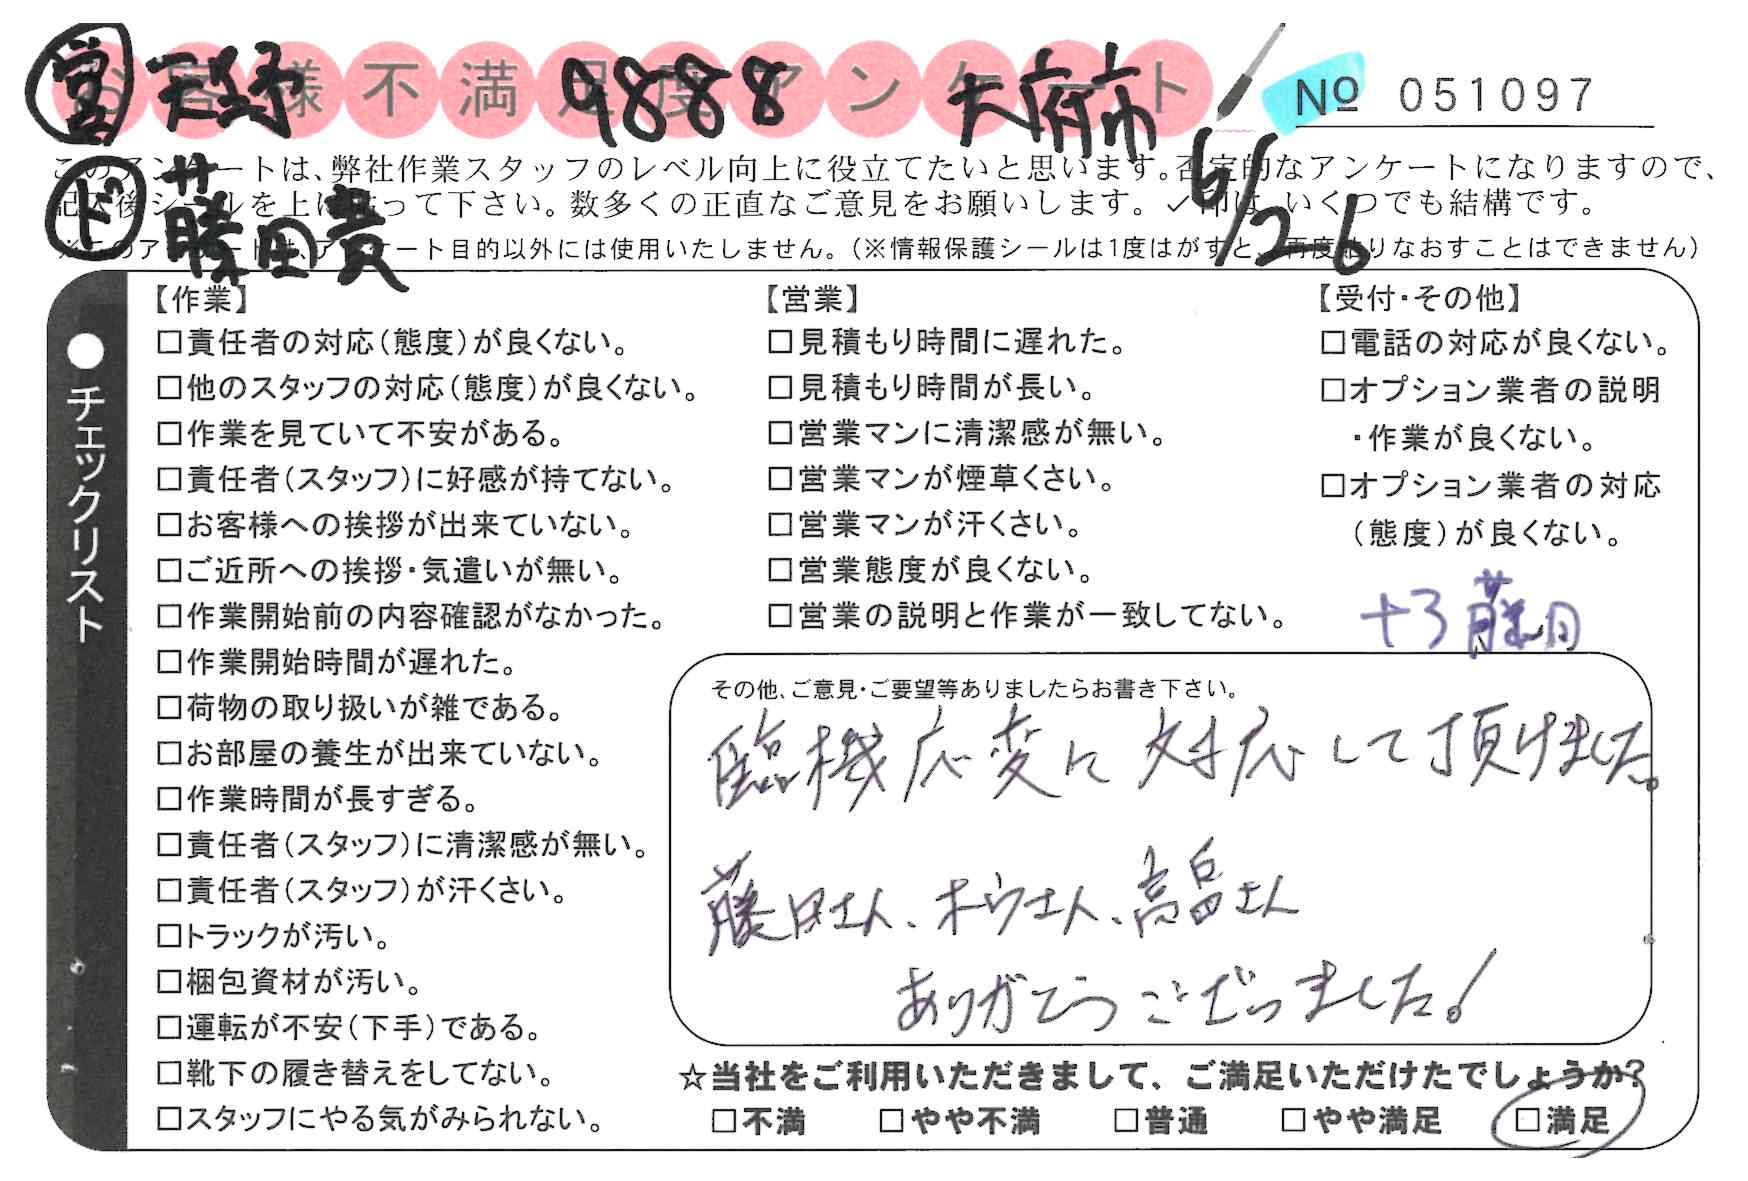 お客様不満足度アンケート
営 天野 9888 大府市 6/26
ド 藤田貴
№ 051097
このアンケートは、弊社作業スタッフのレベル向上に役立てたいと思います。否定的なアンケートになりますので、
記入後シールを上に貼って下さい。数多くの正直なご意見をお願いします。✓印は、いくつでも結構です。
※このアンケートは、アンケート目的以外には使用いたしません。(※情報保護シールは1度はがすと、再度貼りなおすことはできません)
●チェックリスト
【作業】
□責任者の対応(態度)が良くない。
□他のスタッフの対応(態度)が良くない。
□作業を見ていて不安がある。
□責任者(スタッフ)に好感が持てない。
□お客様への挨拶が出来ていない。
□ご近所への挨拶・気遣いが無い。
□作業開始前の内容確認がなかった。
□作業開始時間が遅れた。
□荷物の取り扱いが雑である。
□お部屋の養生が出来ていない。
□作業時間が長すぎる。
□責任者(スタッフ)に清潔感が無い。
□責任者(スタッフ)が汗くさい。
□トラックが汚い。
□梱包資材が汚い。
□運転が不安(下手)である。
□靴下の履き替えをしてない。
□スタッフにやる気がみられない。
【営業】
□見積もり時間に遅れた。
□見積もり時間が長い。
□営業マンに清潔感が無い。
□営業マンが煙草くさい。
□営業マンが汗くさい。
□営業態度が良くない。
□営業の説明と作業が一致してない。
【受付・その他】
□電話の対応が良くない。
□オプション業者の説明
・作業が良くない。
□オプション業者の対応
(態度)が良くない。
+3 藤田
その他、ご意見・ご要望等ありましたらお書き下さい。
臨機応変に対応して頂けました。
藤田さん、ホウさん、高畠さん
ありがとうございました!
☆当社をご利用いただきまして、ご満足いただけたでしょうか?
□不満 □やや不満 □普通 □やや満足 □満足